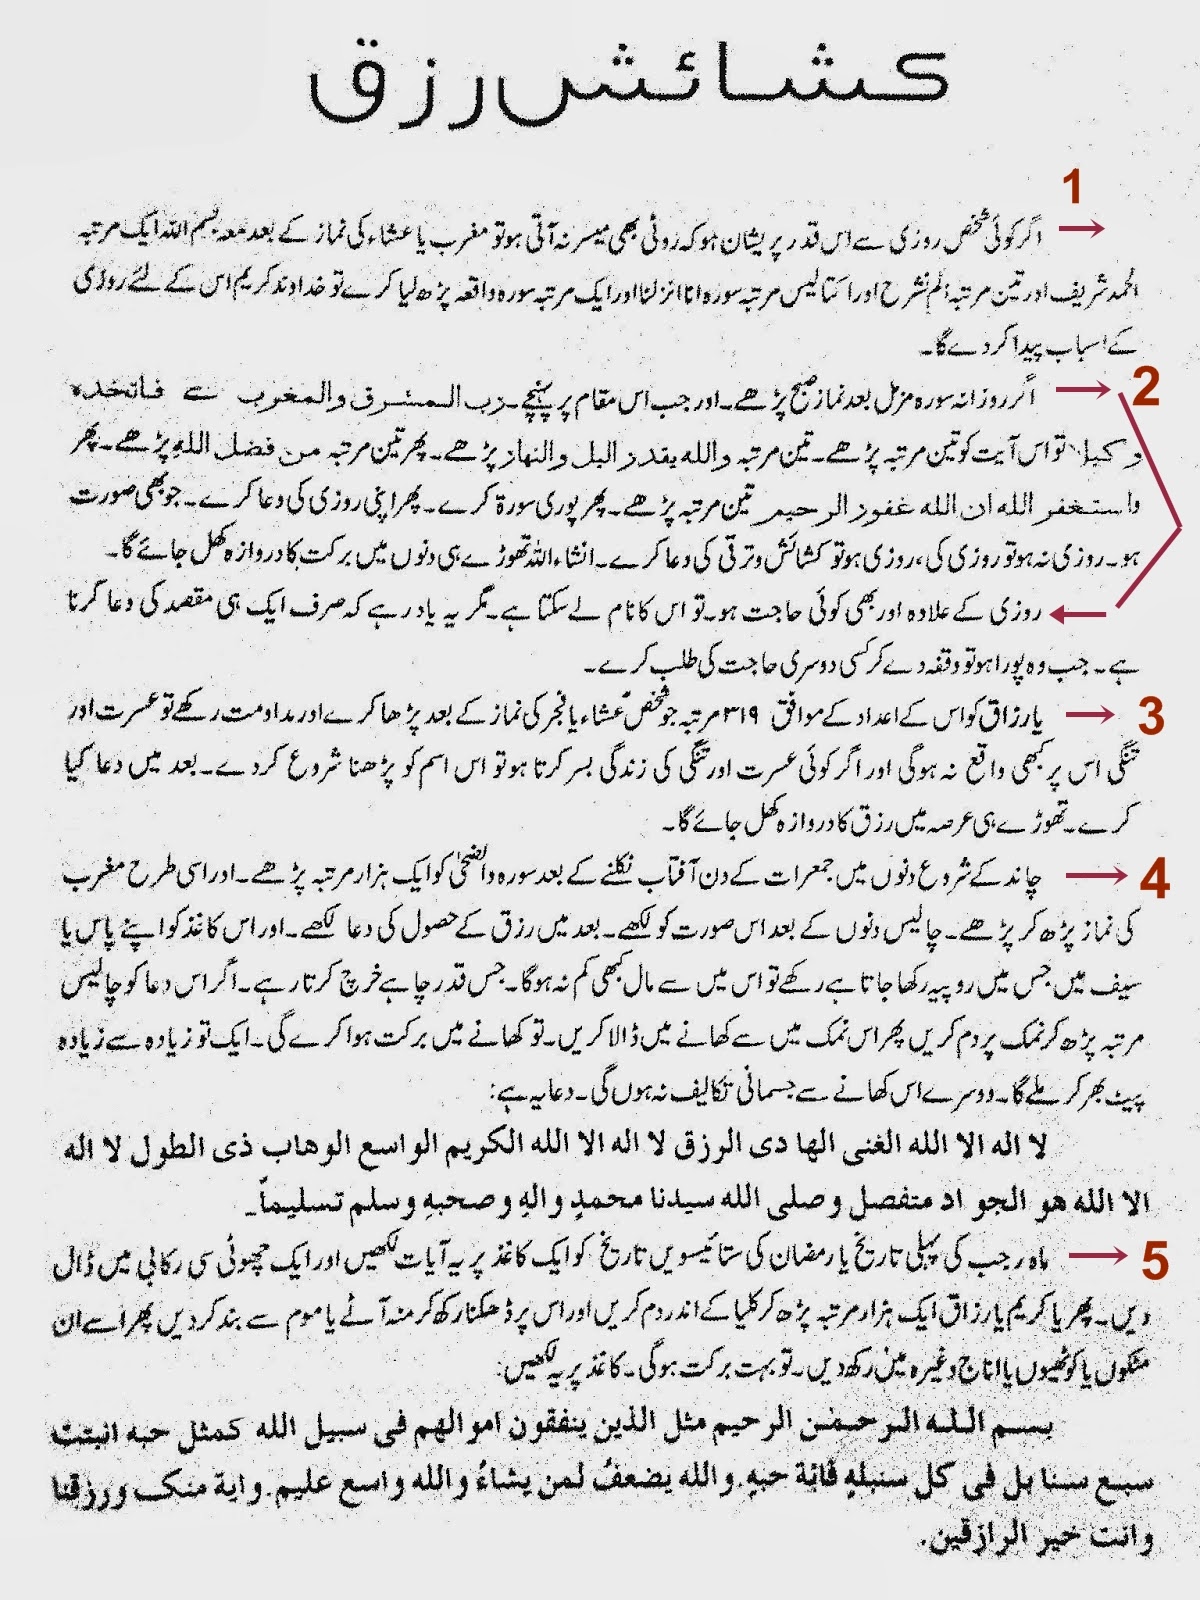 کشائش رزق
1
اگر کوئی شخص روزی سے اس قدر پریشان ہو کہ روٹی بھی میسر نہ آتی ہو تو مغرب یا عشاء کی نماز کے بعد معہ بسم اللہ ایک مرتبہ
الحمد شریف اور تین مرتبہ الم نشرح اور اکتالیس مرتبہ سورہ انا انزلنا اور ایک مرتبہ سورہ واقعہ پڑھ لیا کرے تو خداوند کریم اس کے لئے روزی
کے اسباب پیدا کر دے گا۔
2
اگر روزانہ سورہ مزمل بعد نماز صبح پڑھے۔ اور جب اس مقام پر پہنچے۔ رب المشرق والمغرب سے فاتخذه
وکیلا تو اس آیت کو تین مرتبہ پڑھے۔ تین مرتبہ والله یقدر الیل والنهار پڑھے۔ پھر تین مرتبہ من فضل اللهِ پڑھے۔ پھر
واستغفر الله ان الله غفور الرحیم تین مرتبہ پڑھے۔ پھر پوری سورۃ کرے۔ پھر اپنی روزی کی دعا کرے۔ جو بھی صورت
ہو۔ روزی نہ ہو تو روزی کی، روزی ہو تو کشائش و ترقی کی دعا کرے۔ انشاء اللہ تھوڑے ہی دنوں میں برکت کا دروازہ کھل جائے گا۔
روزی کے علاوہ اور بھی کوئی حاجت ہو۔ تو اس کا نام لے سکتا ہے۔ مگر یہ یاد رہے کہ صرف ایک ہی مقصد کی دعا کرنا
ہے۔ جب وہ پورا ہو تو وقفہ دے کر کسی دوسری حاجت کی طلب کرے۔
3
یا رزاق کو اس کے اعداد کے موافق ۳۱۹ مرتبہ جو شخص عشاء یا فجر کی نماز کے بعد پڑھا کرے اور مداومت رکھے تو عسرت اور
تنگی اس پر کبھی واقع نہ ہوگی اور اگر کوئی عسرت اور تنگی کی زندگی بسر کرتا ہو تو اس اسم کو پڑھنا شروع کر دے۔ بعد میں دعا کیا
کرے۔ تھوڑے ہی عرصہ میں رزق کا دروازہ کھل جائے گا۔
4
چاند کے شروع دنوں میں جمعرات کے دن آفتاب نکلنے کے بعد سورہ والضحیٰ کو ایک ہزار مرتبہ پڑھے۔ اور اسی طرح مغرب
کی نماز پڑھ کر پڑھے۔ چالیس دنوں کے بعد اس صورت کو لکھے۔ بعد میں رزق کے حصول کی دعا لکھے۔ اور اس کاغذ کو اپنے پاس یا
سیف میں جس میں روپیہ رکھا جاتا ہے رکھے تو اس میں سے مال کبھی کم نہ ہوگا۔ جس قدر چاہے خرچ کرتا رہے۔ اگر اس دعا کو چالیس
مرتبہ پڑھ کر نمک پر دم کریں پھر اس نمک میں سے کھانے میں ڈالا کریں۔ تو کھانے میں برکت ہوا کرے گی۔ ایک تو زیادہ سے زیادہ
پیٹ بھر کر ملے گا۔ دوسرے اس کھانے سے جسمانی تکالیف نہ ہوں گی۔ دعا یہ ہے:
لا اله الا الله الغنی الها دی الرزق لا اله الا الله الکریم الواسع الوهاب ذی الطول لا اله
الا الله هو الجو اد متفصل وصلی الله سیدنا محمدٍ والهٖ وصحبهٖ وسلم تسلیماً۔
5
ماہ رجب کی پہلی تاریخ یا رمضان کی ستائیسویں تاریخ کو ایک کاغذ پر یہ آیات لکھیں اور ایک چھوٹی سی رکابی میں ڈال
دیں۔ پھر یا کریم یا رزاق ایک ہزار مرتبہ پڑھ کر کلیا کے اندر دم کریں اور اس پر ڈھکنا رکھ کر منہ آٹے یا موم سے بند کر دیں پھر اسے ان
مٹکوں یا کوٹھیوں یا اناج وغیرہ میں رکھ دیں۔ تو بہت برکت ہوگی۔ کاغذ پر یہ لکھیں:
بسم الله الرحمٰن الرحیم مثل الذین ینفقون اموالهم فی سبیل الله کمثل حبه انبتت
سبع سنا بل فی کل سنبلهٍ قائة حبهٍ. والله یضعفُ لمن یشاءُ والله واسع علیم. وایة منک ورزقنا
وانت خیر الرازقین.